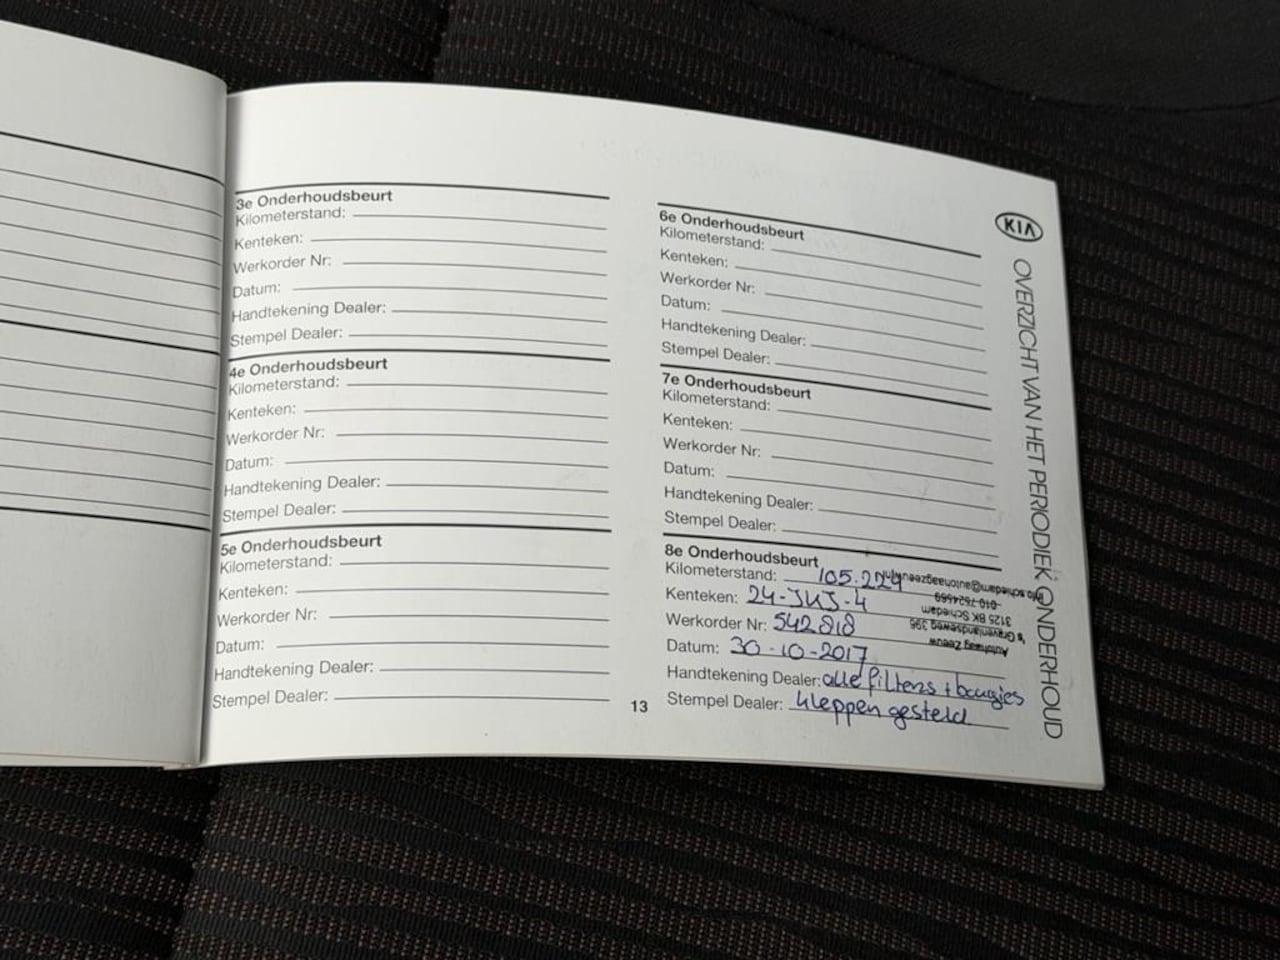 3e Onderhoudsbeurt
Kilometerstand:
Kenteken:
Werkorder Nr:
Datum:
Handtekening Dealer:
Stempel Dealer:
4e Onderhoudsbeurt
Kilometerstand:
Kenteken:
Werkorder Nr:
Datum:
Handtekening Dealer:
Stempel Dealer:
5e Onderhoudsbeurt
Kilometerstand:
Kenteken:
Werkorder Nr:
Datum:
Handtekening Dealer:
Stempel Dealer:
13
6e Onderhoudsbeurt
Kilometerstand:
Kenteken:
Werkorder Nr:
Datum:
Handtekening Dealer:
Stempel Dealer:
7e Onderhoudsbeurt
Kilometerstand:
Kenteken:
Werkorder Nr:
Datum:
Handtekening Dealer:
Stempel Dealer:
8e Onderhoudsbeurt
Kilometerstand: 105.224
Kenteken: 24-JKJ-4
Werkorder Nr: 542818
Datum: 30-10-2017
Handtekening Dealer: alle filters + bougies
Stempel Dealer: kleppen gesteld
Autohaag Zeeuw
's Gravenlandseweg 396
3125 BK Schiedam
010-7524569
KIA
OVERZICHT VAN HET PERIODIEK ONDERHOUD